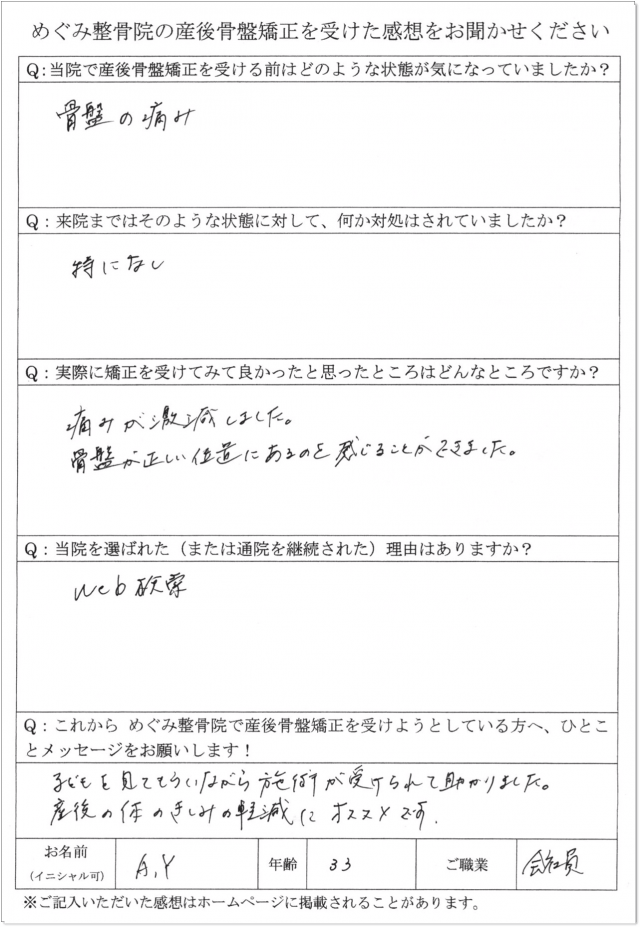 めぐみ整骨院の産後骨盤矯正を受けた感想をお聞かせください
Q:当院で産後骨盤矯正を受ける前はどのような状態が気になっていましたか？
骨盤の痛み
Q：来院まではそのような状態に対して、何か対処はされていましたか？
特になし
Q：実際に矯正を受けてみて良かったと思ったところはどんなところですか？
痛みが激減しました。
骨盤が正しい位置にあるのを感じることができました。
Q：当院を選ばれた（または通院を継続された）理由はありますか？
Web検索
Q：これから めぐみ整骨院で産後骨盤矯正を受けようとしている方へ、ひとこ
とメッセージをお願いします！
子どもを見てもらいながら施術が受けられて助かりました。
産後の体のきしみの軽減にオススメです.
お名前
（イニシャル可）
A,Y
年齢
33
ご職業
会社員
※ご記入いただいた感想はホームページに掲載されることがあります。